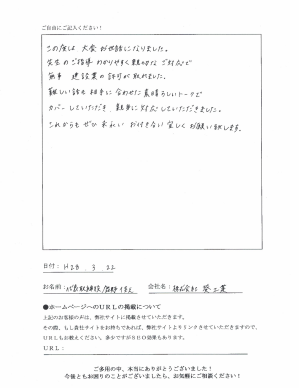 ご自由にご記入ください！
この度は 大変 お世話になりました。
先生の ご指導 わかりやすく 親切な ご対応で
無事 建設業の 許可が 取れました。
難しい話も 相手に 合わせた 素晴らしいトークで
カバーしていただき、親身に 対応していただきました。
これからも ぜひ 末永い お付き合い 宜しく お願い致します。
日付：H28. 3. 22
お名前：代表取締役
会社名：株式会社 葵工業
●ホームページへのＵＲＬの掲載について
上記のお客様の声は、弊社サイトに掲載させていただきます。
その際、もし貴社サイトをお持ちであれば、弊社サイトよりリンクさせていただきますので、
ＵＲＬもお教えください。多少ですがＳＥＯ効果もあります。
ＵＲＬ：
ご多用の中、本当にありがとうございました！
今後ともお困りのことがございましたら、お気軽にご相談ください！